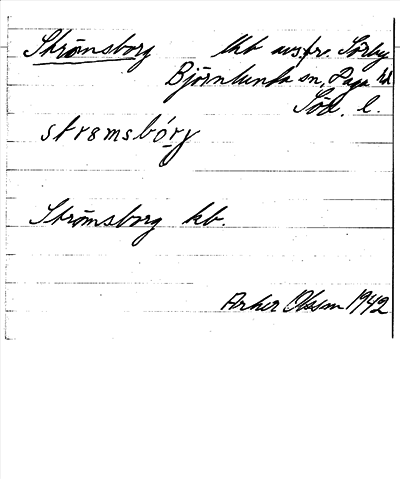 Strömsborg lhb avs. fr. Sörby
Björnlunda sn, Daga hd
Söd. l.
strømsbórg
Strömsborg lhb.
Olsson 1942